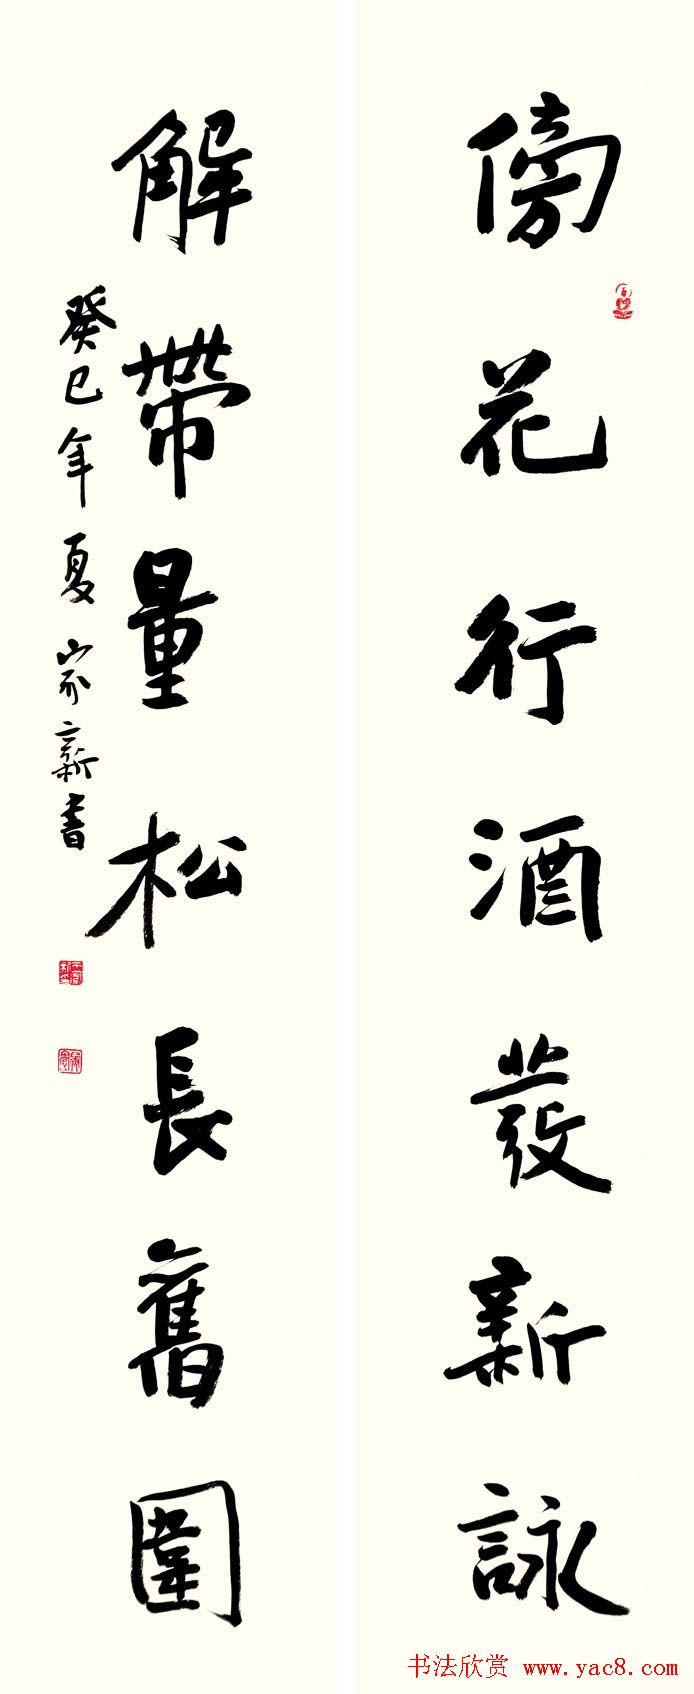 傍花行酒發新詠
解帶量松長舊圍
癸巳年夏 家新書
书法欣赏 www.yac8.com